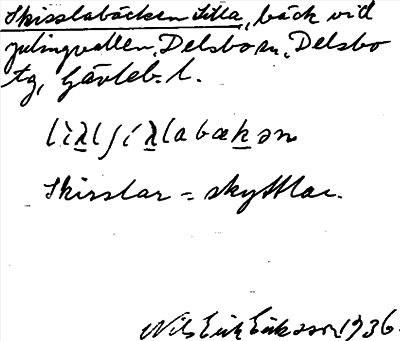 Skisslabäcken Lilla, bäck vid
Julingvallen, Delsbo sn, Delsbo
tg, Gävleb. l.
Skisslar = skyttlar.
Nils Erik Eriksson 1936.